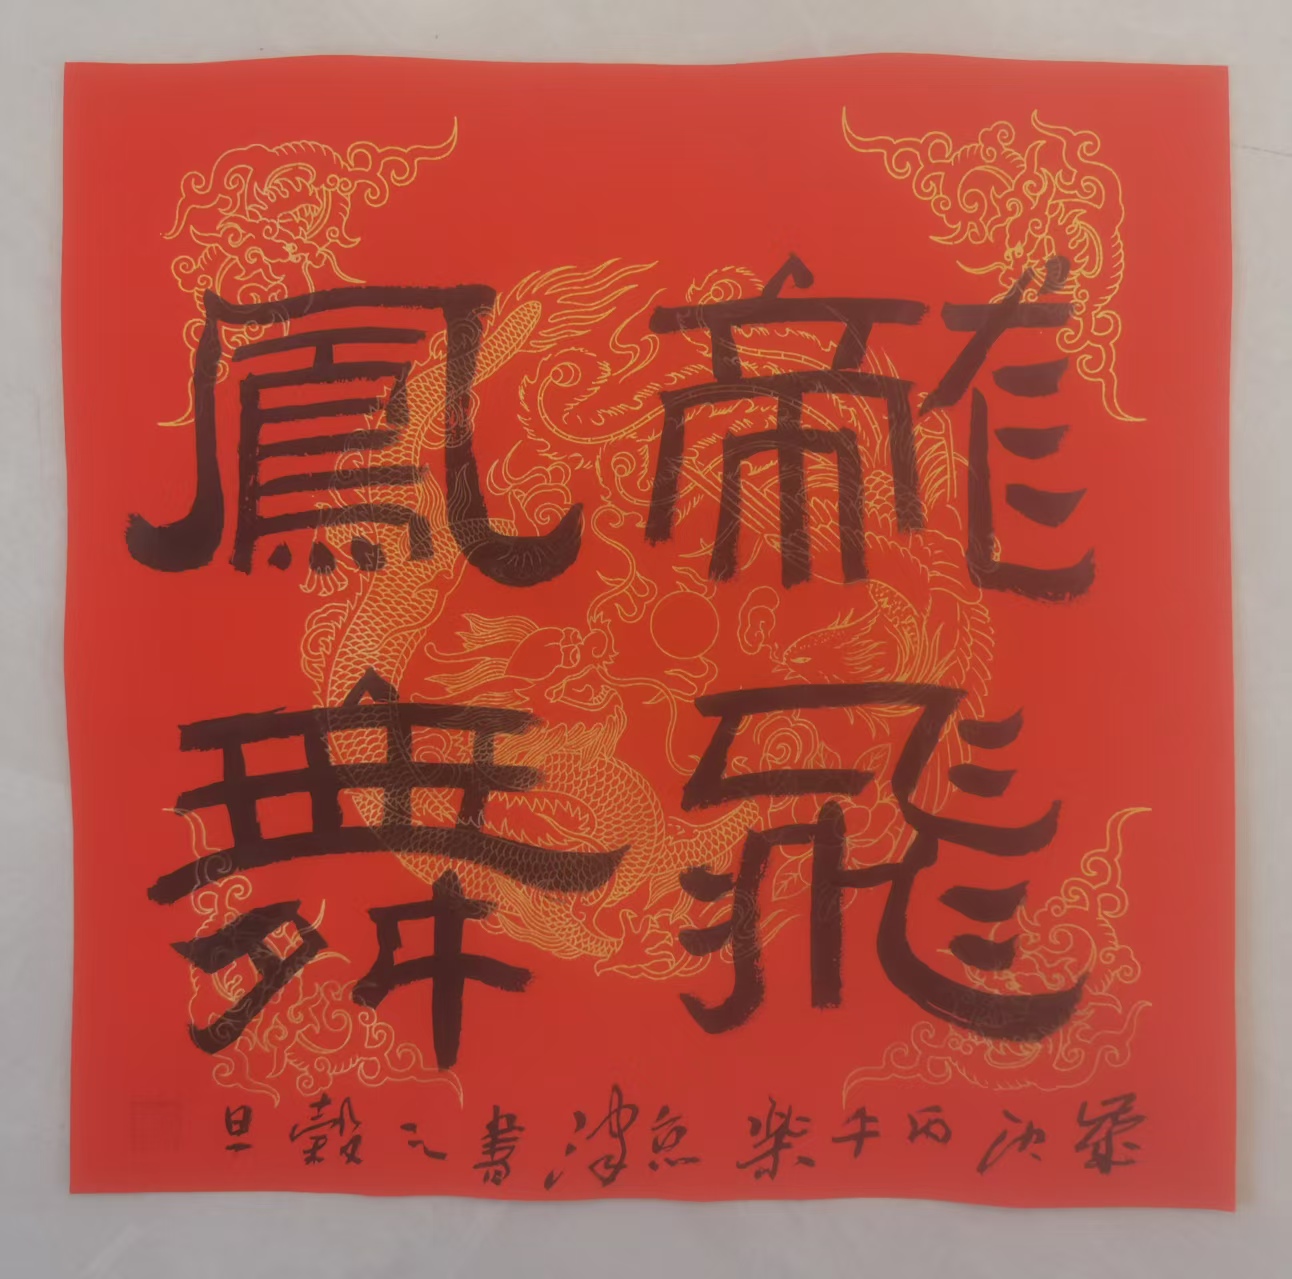 龍飛
鳳舞
歲次丙午柴京津書之穀旦